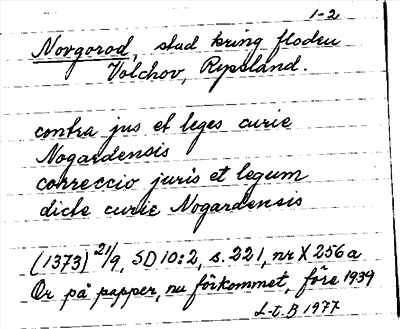 1-2
Novgorod, stad kring floden
Volchov, Ryssland.
contra jus et leges curie
Nogardensis
correccio juris et legum
dicte curie Nogardensis
(1373) 21/9, SD 10:2, s. 221, nr X 256 a
Or på papper, nu förkommet, före 1939
L-O.B 1977